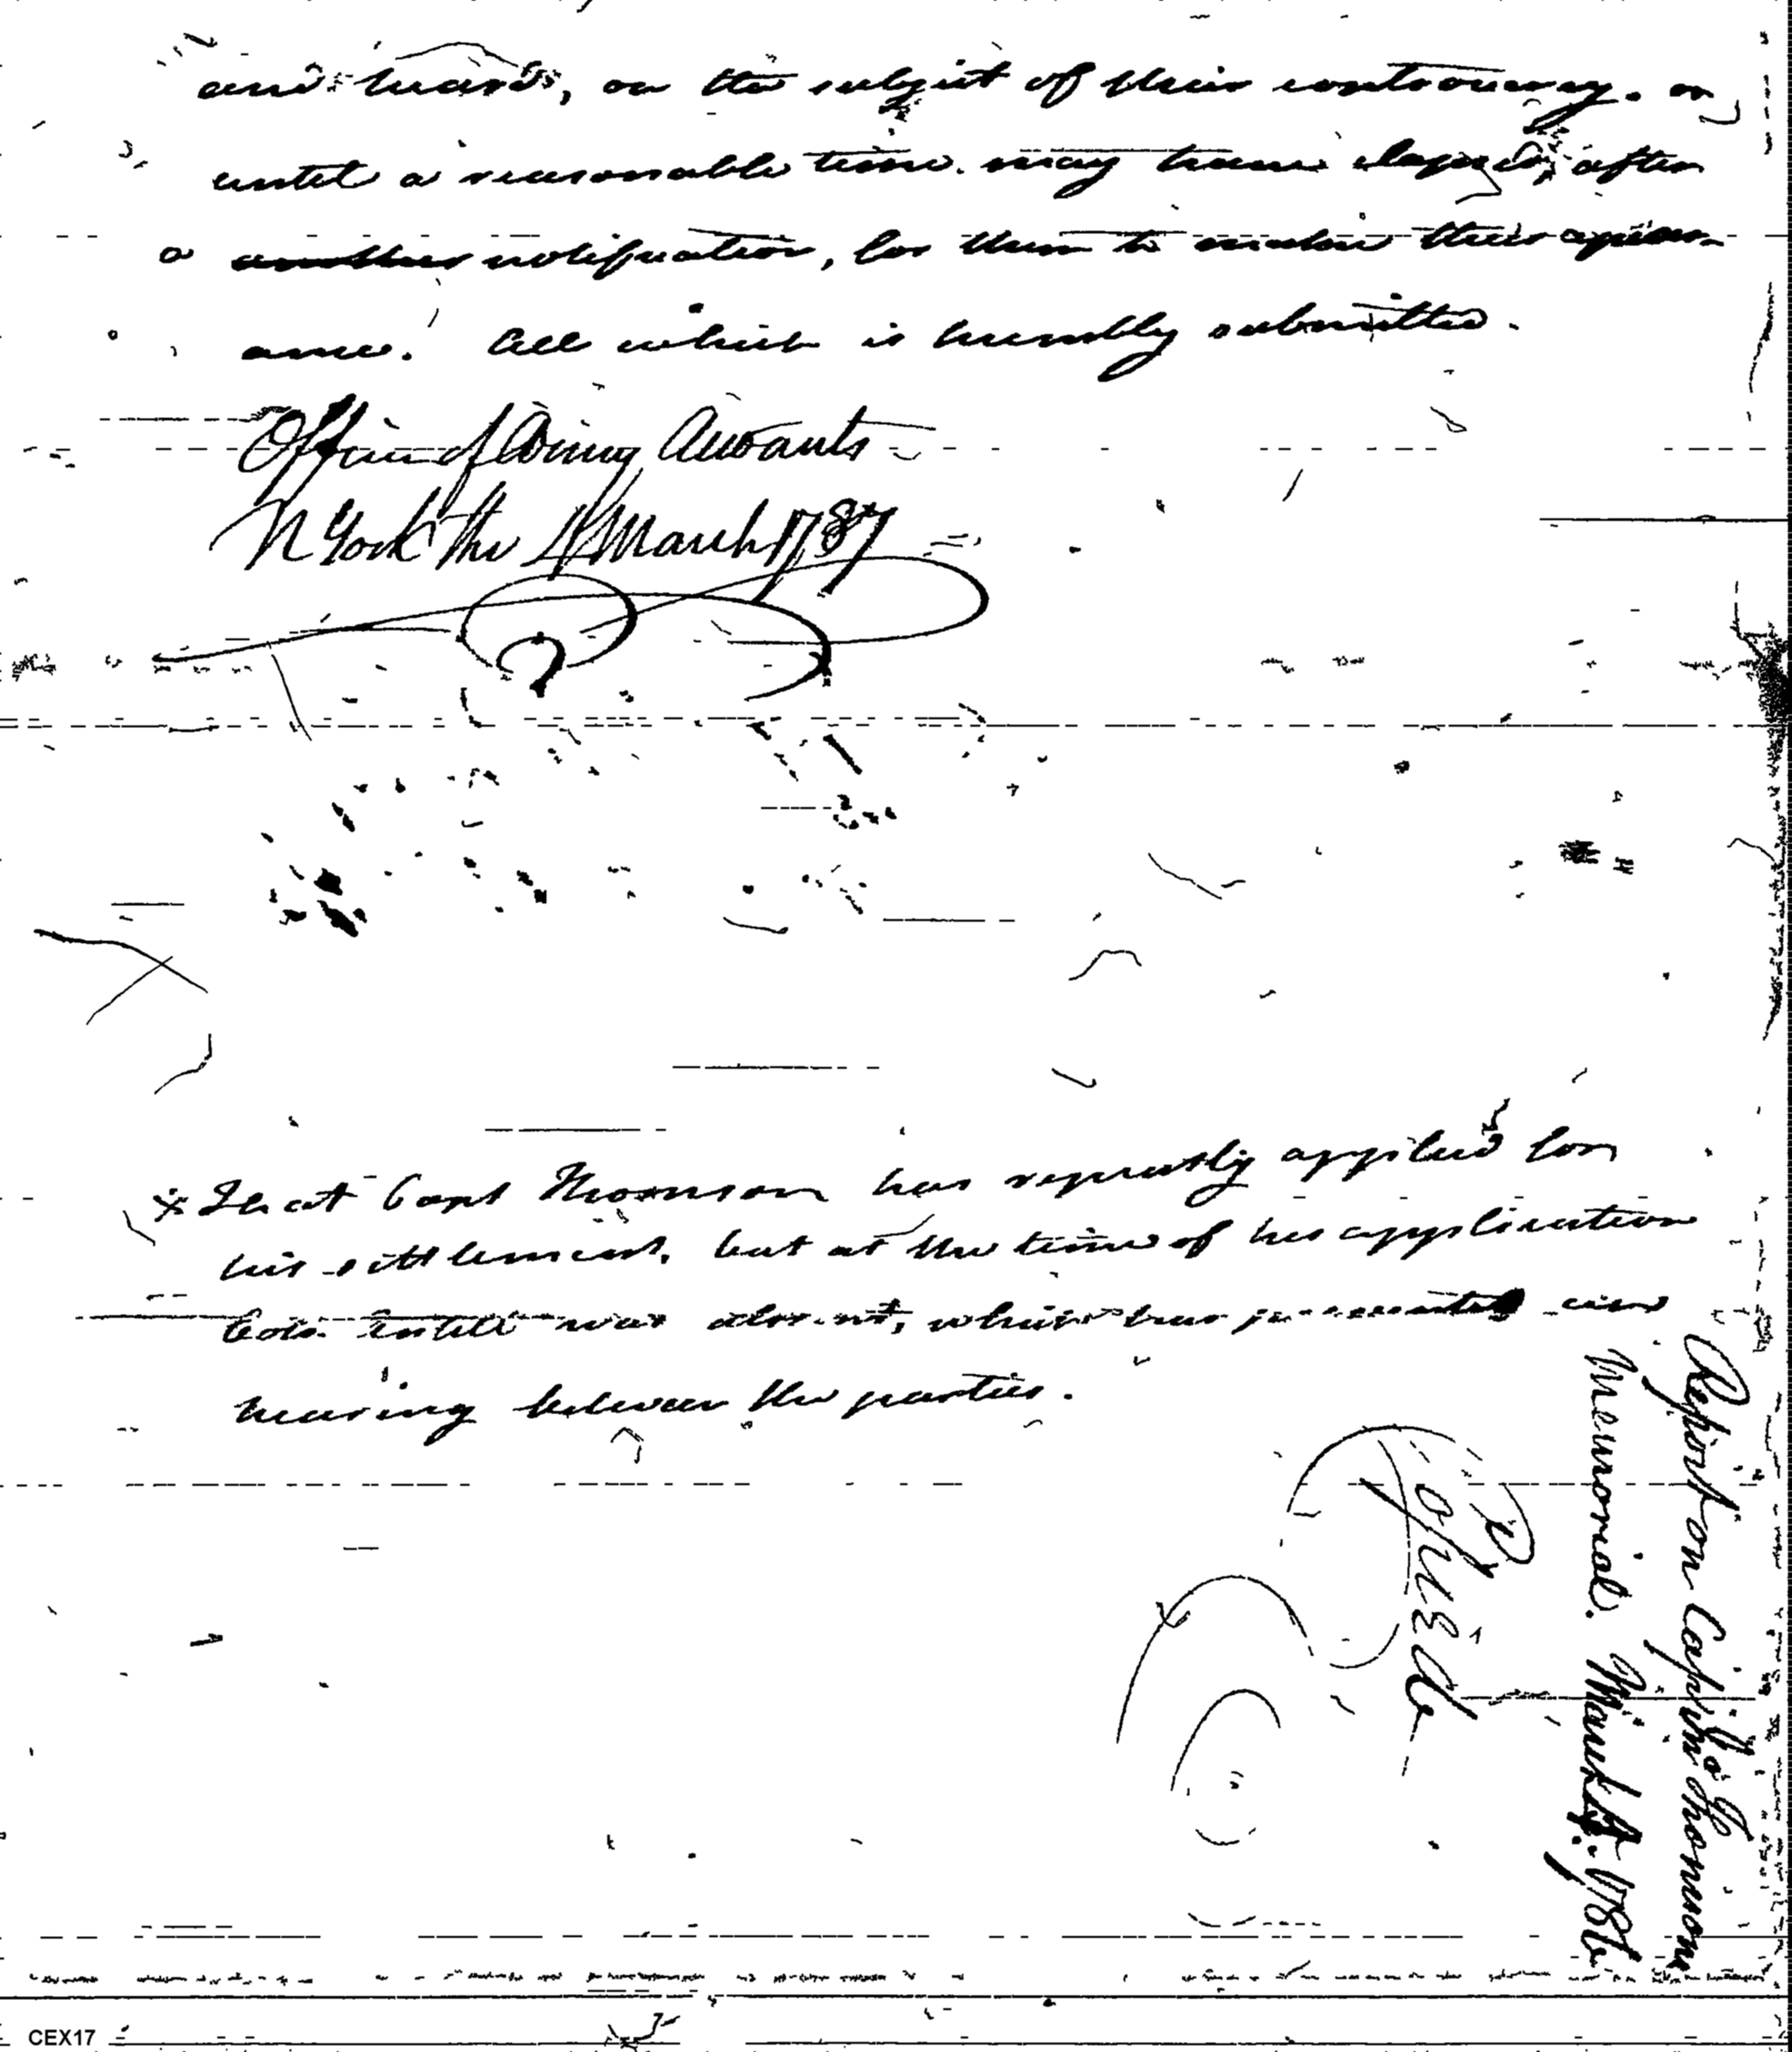 and heard, on the subject of their controversy. or
until a reasonable time may have elapsed, after
a another notification, for them to make their appear-
ance. All which is humbly submitted.
Office of Army Accounts
N York the 4 March 1787
* That Capt Thomson has repeatedly applied for
his settlement, but at the time of his application
Colo. was absent, which has prevented any
hearing between the parties.
Report on Captn Thomson
Memorial. March 1786
CEX17